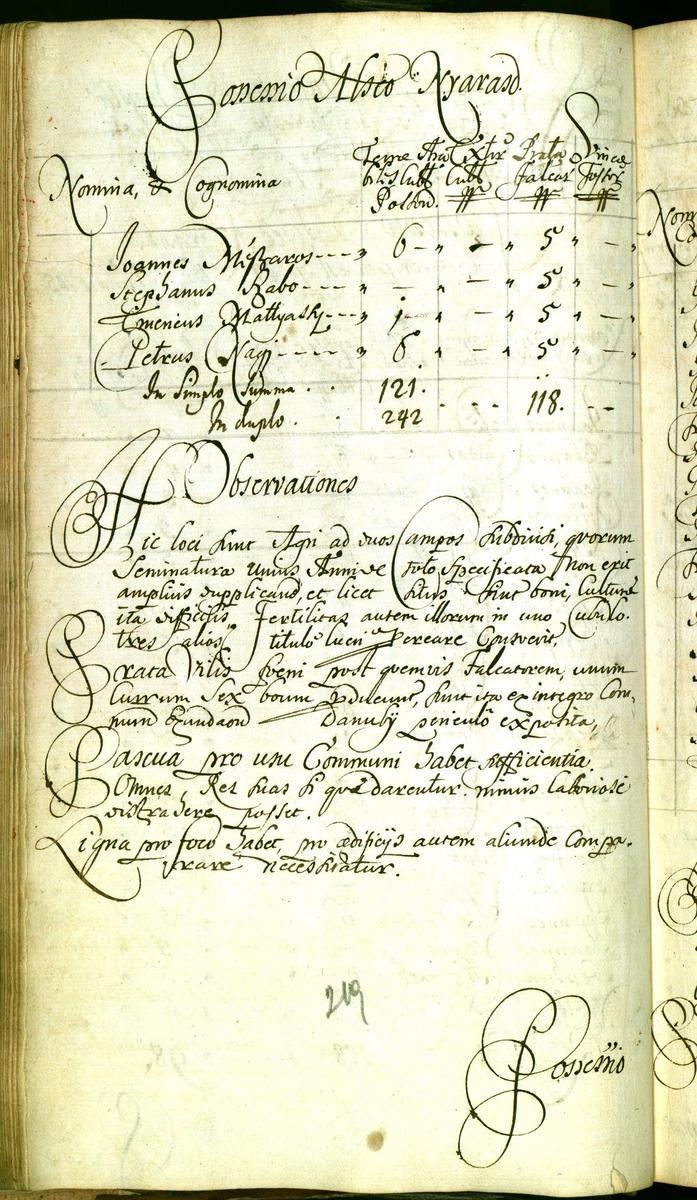 Possessio Alsó Nyarasd.
Nomina, et Cognomina
Terræ Ara Extir Prata Vineæ
bilis Cubl Cubl Falcat Fossr
Poson. ff ff ff
Joannes Mészáros - - - " 6 - " - " 5 " - "
Stephanus Szabo - - - " - - " - " 5 " - "
Emericus Mattyasy - - - " j - " - " 5 " - "
Petrus Nagy - - - - " 6 " - " 5 " - "
In Simplo Summa . . 121. . - . 118. - -
In duplo . . 242
Observationes
Hic loci sunt Agri ad duos Campos subdivisi, quorum
Seminatura unius Anni de toto specificata non erit
amplius dupplicand, et licet situs sint boni, Culturæ
ita difficilis, Fertilitas autem illorum in uno Cubulo
tres alios titulo lucri procreare Consvevit.
Prata Vilis foeni post quemvis Falcatorem, unum
currum Sex boum producunt, sunt ita ex integro
Danubij periculo exposita,
Pascua pro usu Communi habet sufficientia.
Omnes Res suas si quæ darentur nimis laboriose
distrahere posset.
Ligna pro foco habet, pro ædificijs autem aliunde Compa-
rare necessitatur.
219
Possessio